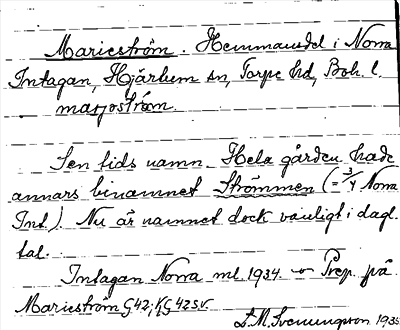 Marieström. Hemmansdel i Norra
Intagan, Hjärtum sn, Torpe hd, Boh. l.
marjoström
Sen tids namn. Hela gården hade
annars binamnet Strömmen (= 3/4 Norra
Int.). Nu är namnet dock vanligt i dagl.
tal.
Intagan Norra ml. 1934. Prep. på
Marieström G42, KG42sv.
S.M. Svenungsson 193